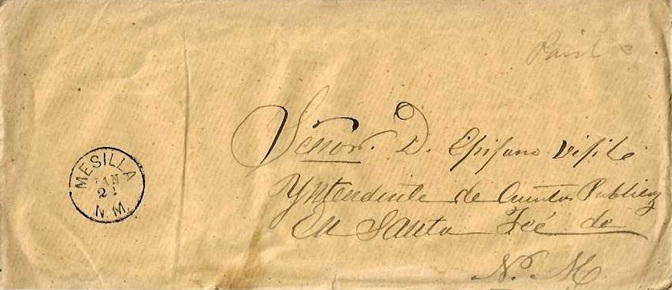 Paid 3
MESILLA
JAN
21
N.M.
Señor. D. Epifano Vijil
Yntendente de Cuentas Publicas
En Santa Feé de
N. M